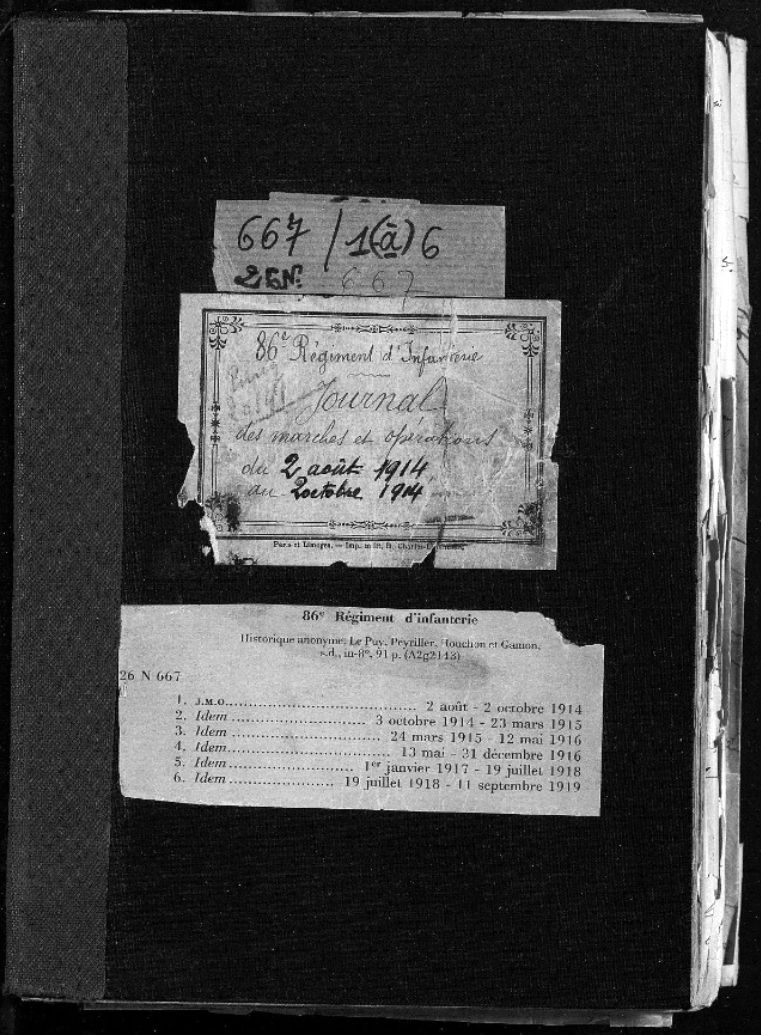 667 / 1(à) 6
26 N. 667
86e Régiment d'Infanterie
Journal
des marches et opérations
du 2 août 1914
au 2 octobre 1914
Paris et Limoges. — Imp. milit. H. Charles-Lavauzelle.
86e Régiment d'infanterie
Historique anonyme. Le Puy, Peyriller, Rouchon et Gamon,
s.d., in-8°, 91 p. (A2g2143)
26 N 667
1. J.M.O. 2 août - 2 octobre 1914
2. Idem 3 octobre 1914 - 23 mars 1915
3. Idem 24 mars 1915 - 12 mai 1916
4. Idem 13 mai - 31 décembre 1916
5. Idem 1er janvier 1917 - 19 juillet 1918
6. Idem 19 juillet 1918 - 11 septembre 1919